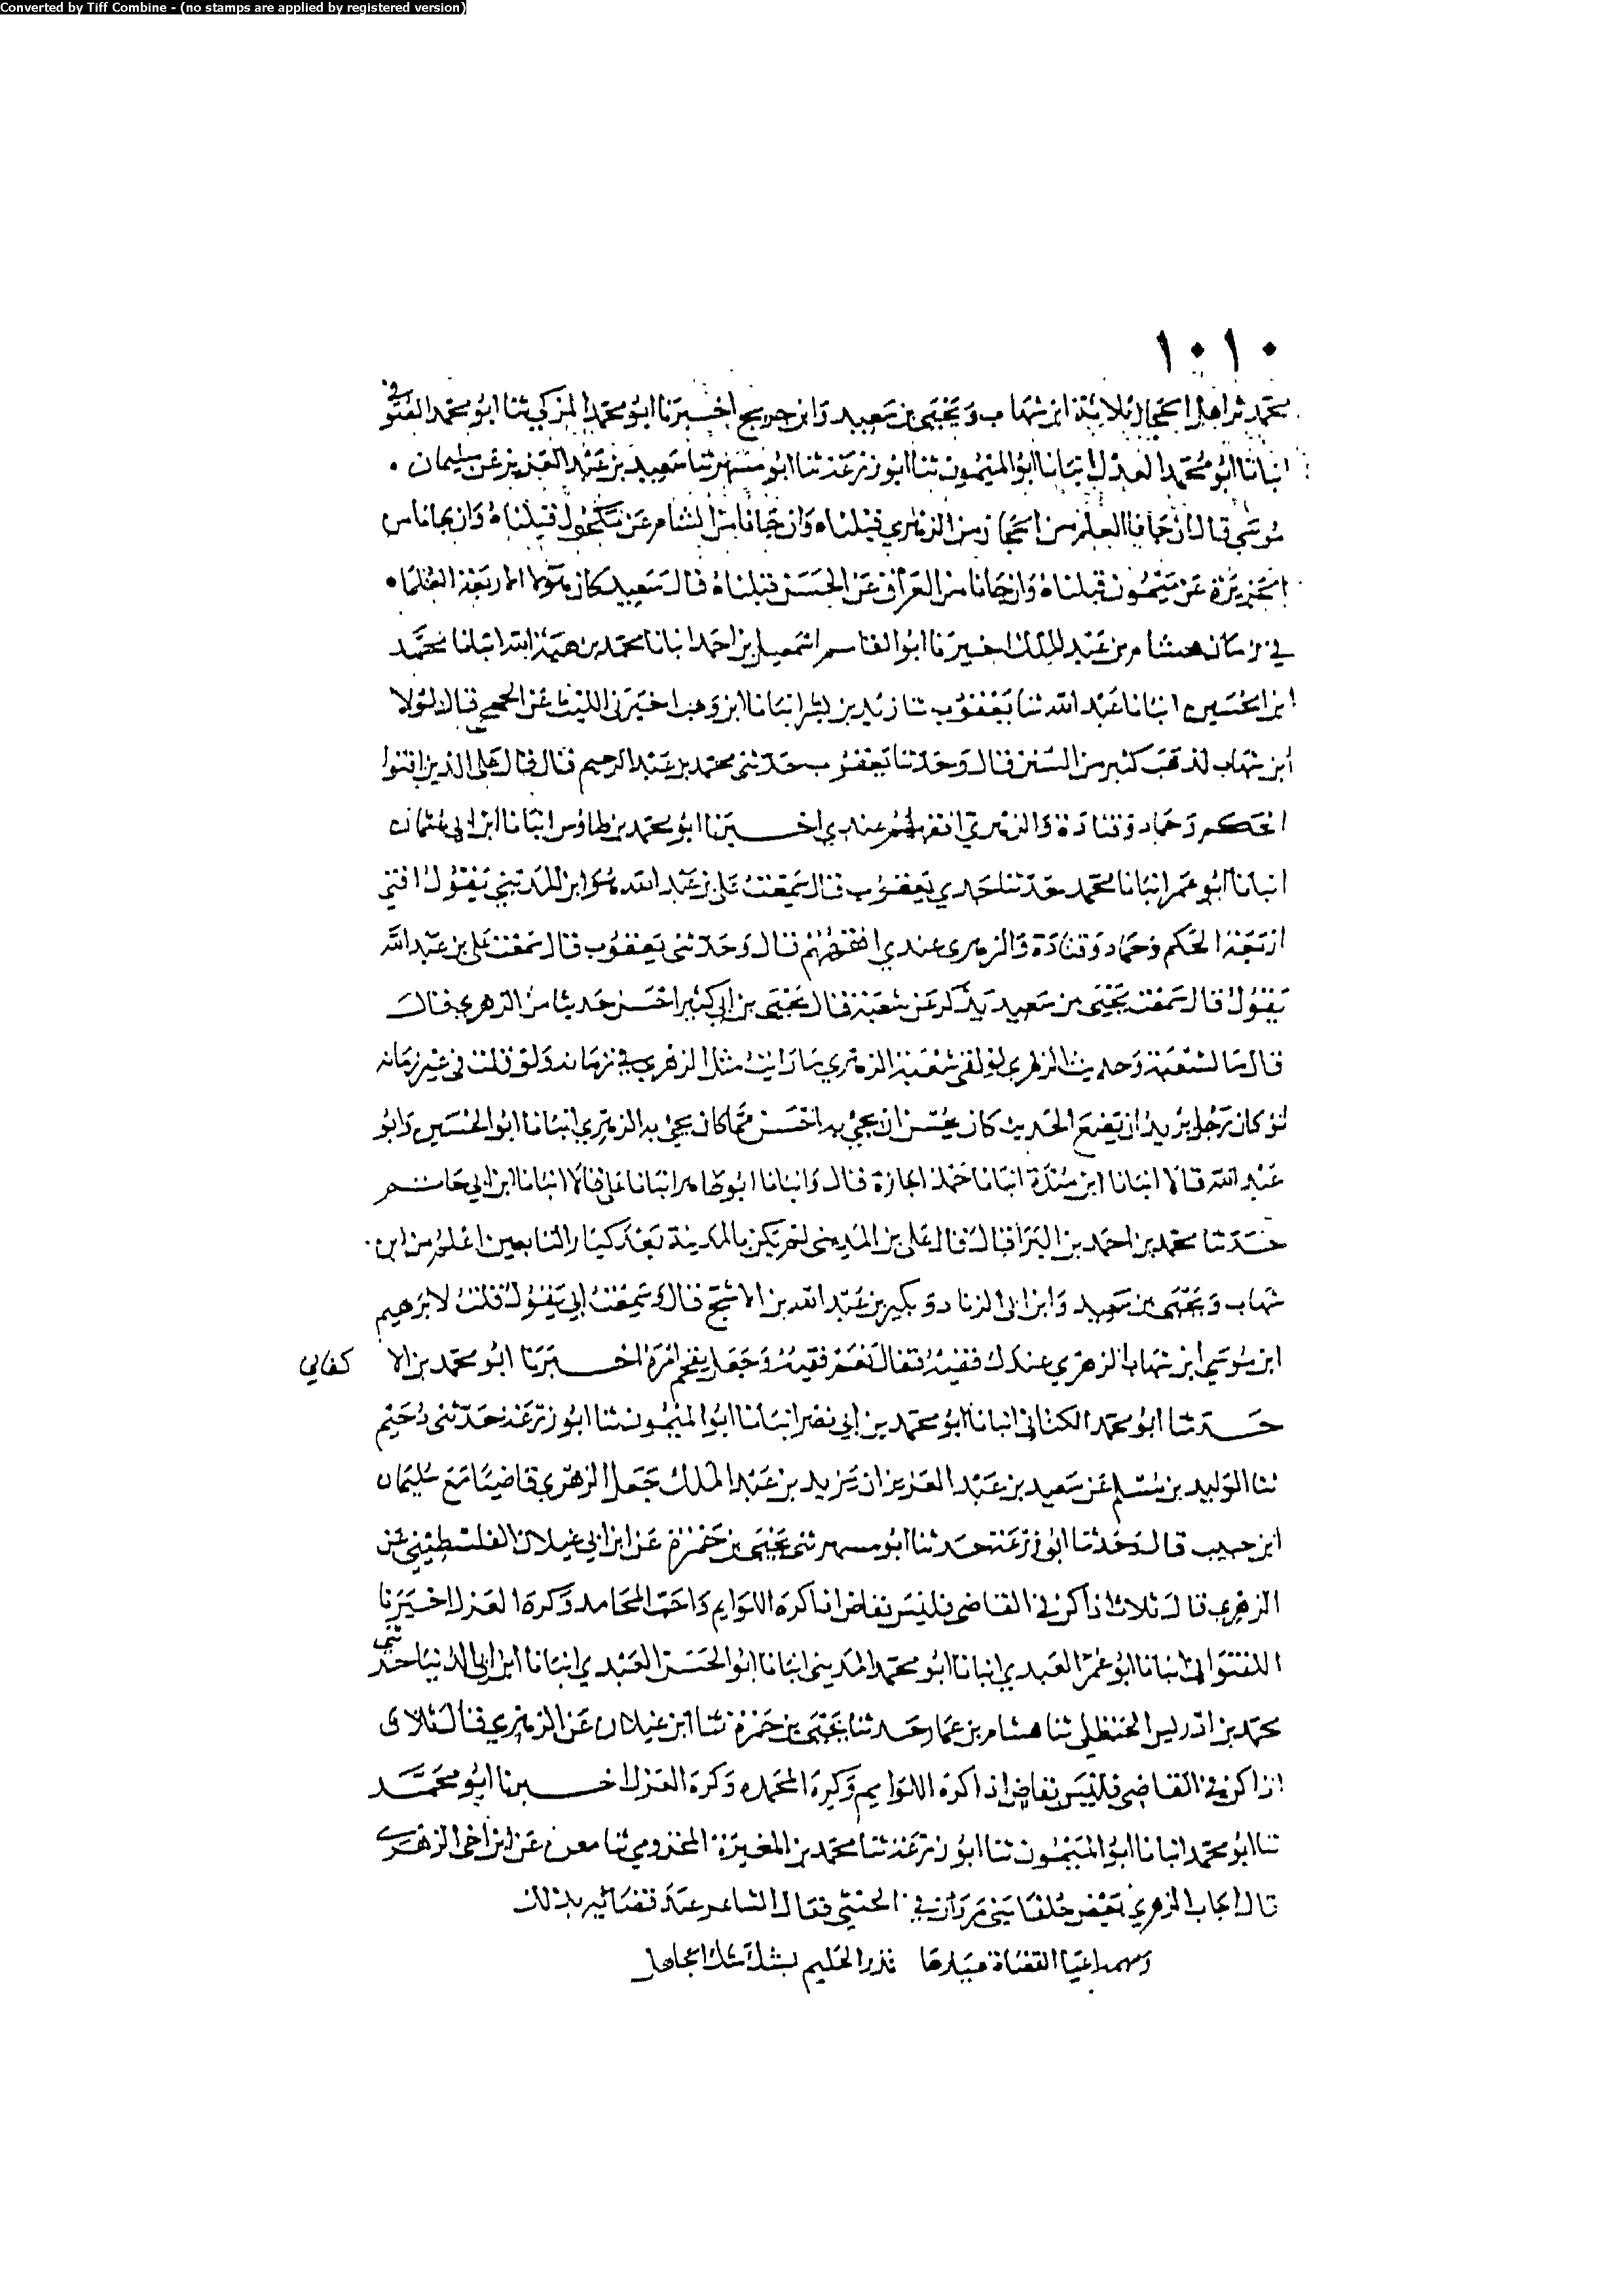 Converted by Tiff Combine - (no stamps are applied by registered version)
١٠١٠
اهل الحجاز ثلاثة ابن شهاب ويحيى بن سعيد وابن جريج اخبرنا ابو محمد المزكي ثنا ابو محمد الصوفي
انبانا ابو محمد العدل انبانا ابو الميمون ثنا ابو زرعة ثنا ابو مسهر ثنا سعيد بن عبد العزيز عن سليمان
موسى قال ان جانا العلم من الحجاز من الزهري قبلناه وان جانا من الشام عن مكحول قبلناه وان جانا من
الجزيرة عن ميمون قبلناه وان جانا من العراق عن الحسن قبلناه قال سعيد كان هولا الاربعة العلماء
في زمان هشام بن عبد الملك اخبرنا ابو القاسم اسمعيل بن احمد انبانا محمد بن هبة الله انبانا محمد
ابن الحسين انبانا عبد الله ثنا يعقوب ثنا زيد بن بشر انبانا ابن وهب اخبرني الليث عن الجمحي قال لولا
ابن شهاب لذهب كثير من السنن قال وحدثنا يعقوب حدثني محمد بن عبد الرحيم قال قال علي الذين افتوا
الحكم وحماد وقتادة والزهري افقههم عندي اخبرنا ابو محمد بن طاوس انبانا ابن ابي عثمان
انبانا ابو عمر انبانا محمد حدثنا جدي يعقوب قال سمعت علي بن عبد الله هو ابن المديني يقول افتى
اربعة الحكم وحماد وقتادة والزهري عندي افقههم قال وحدثني يعقوب قال سمعت علي بن عبد الله
يقول قال سمعت يحيى بن سعيد يذكر عن شعبة قال يحيى بن ابي كثير احسن حديثا من الزهري قال
قال ما لشعبة وحديث الزهري لو لقي شعبة الزهري ما رايت مثل الزهري في زمانه ولو قلت في غير زمانه
لو كان رجل يريد ان يضع الحديث كان يحسن ان يجي به احسن مما كان يجي به الزهري انبانا ابو الحسين وابو
عبد الله قالا انبانا ابن مندة انبانا حمد اجازة قال وانبانا ابو طاهر انبانا علي قالا انبانا ابن ابي حاتم
حدثنا محمد بن احمد بن البرا قال قال علي بن المديني لم يكن بالمدينة بعد كبار التابعين اعلم من ابن
شهاب ويحيى بن سعيد وابن ابي الزناد وبكير بن عبد الله بن الاشج قال وسمعت ابي يقول قلت لابرهيم
ابن موسى ابن شهاب الزهري عندك فقيه فقال نعم فقيه وجعل يفخم امره اخبرنا ابو محمد بن الا كفاني
حدثنا ابو محمد الكتاني انبانا ابو محمد بن ابي نصر انبانا ابو الميمون ثنا ابو زرعة حدثني دحيم
ثنا الوليد بن مسلم عن سعيد بن عبد العزيز ان يزيد بن عبد الملك جعل الزهري قاضيا مع سليمان
ابن حبيب قال وحدثنا ابو زرعة حدثنا ابو مسهر ثني يحيى بن حمزة عن ابن ابي غيلان الفلسطيني عن
الزهري قال ثلاث اذا كن في القاضي فليس بقاض اذا كره اللوايم واحب المحامد وكره العزل اخبرنا
اللفتواني انبانا ابو عمر العبدي انبانا ابو محمد المديني انبانا ابو الحسن العبدي انبانا ابن ابي الدنيا حدثني
محمد بن ادريس الحنظلي ثنا هشام بن عمار حدثنا يحيى بن حمزة ثنا ابن غيلان عن الزهري قال ثلاث
اذا كن في القاضي فليس بقاض اذا كره اللوايم وكره المحمده وكره العزل اخبرنا ابو محمد
ثنا ابو محمد انبانا ابو الميمون ثنا ابو زرعة ثنا محمد بن المغيرة المخزومي ثنا معن عن ابن اخي الزهري
قال اجاب الزهري بعض خلفا بني مروان في الخنثى فقال الشاعر عند قضائه بذلك
ومهمه اعيا القضاة تذر الحليم يشك شك الجاهل